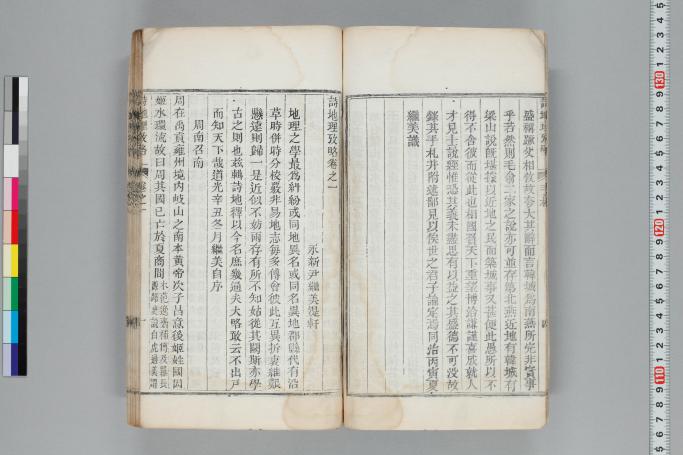 盛稱蹶父相攸故夸大其辭而言韓城爲南燕所完非實事
乎若然則毛鄭二家之說亦可並存第北燕近地有韓城有
梁山說旣堪據以近地之民而築城事又甚便此愚所以不
得不舍彼而從此也相國召天下重望博洽謙謹喜成就人
才見士說經惟恐其義未盡思有以益之其盛德不可沒故
錄其手札并附述鄙見以俟世之君子論定焉同治丙寅夏
繼美識
詩地理攷略卷之一
永新尹繼美湜軒
地理之學最爲紏紛或同地異名或同名異地郡縣代有沿
革時併時分校嚴非易地志每多傅會彼此互異折衷維艱
懸遠則歸一是近似不妨兩存有所不知姑從其闕斯亦學
古之則也玆輯詩地釋以今名庶幾通夫大略敢云不出戶
而知天下哉道光辛丑冬月繼美自序
周南召南
周在禹貢雍州境內岐山之南本黃帝次子昌意後姬姓國因
姬水環流故曰周其國已亡於夏商間
詩地理攷略 卷之一